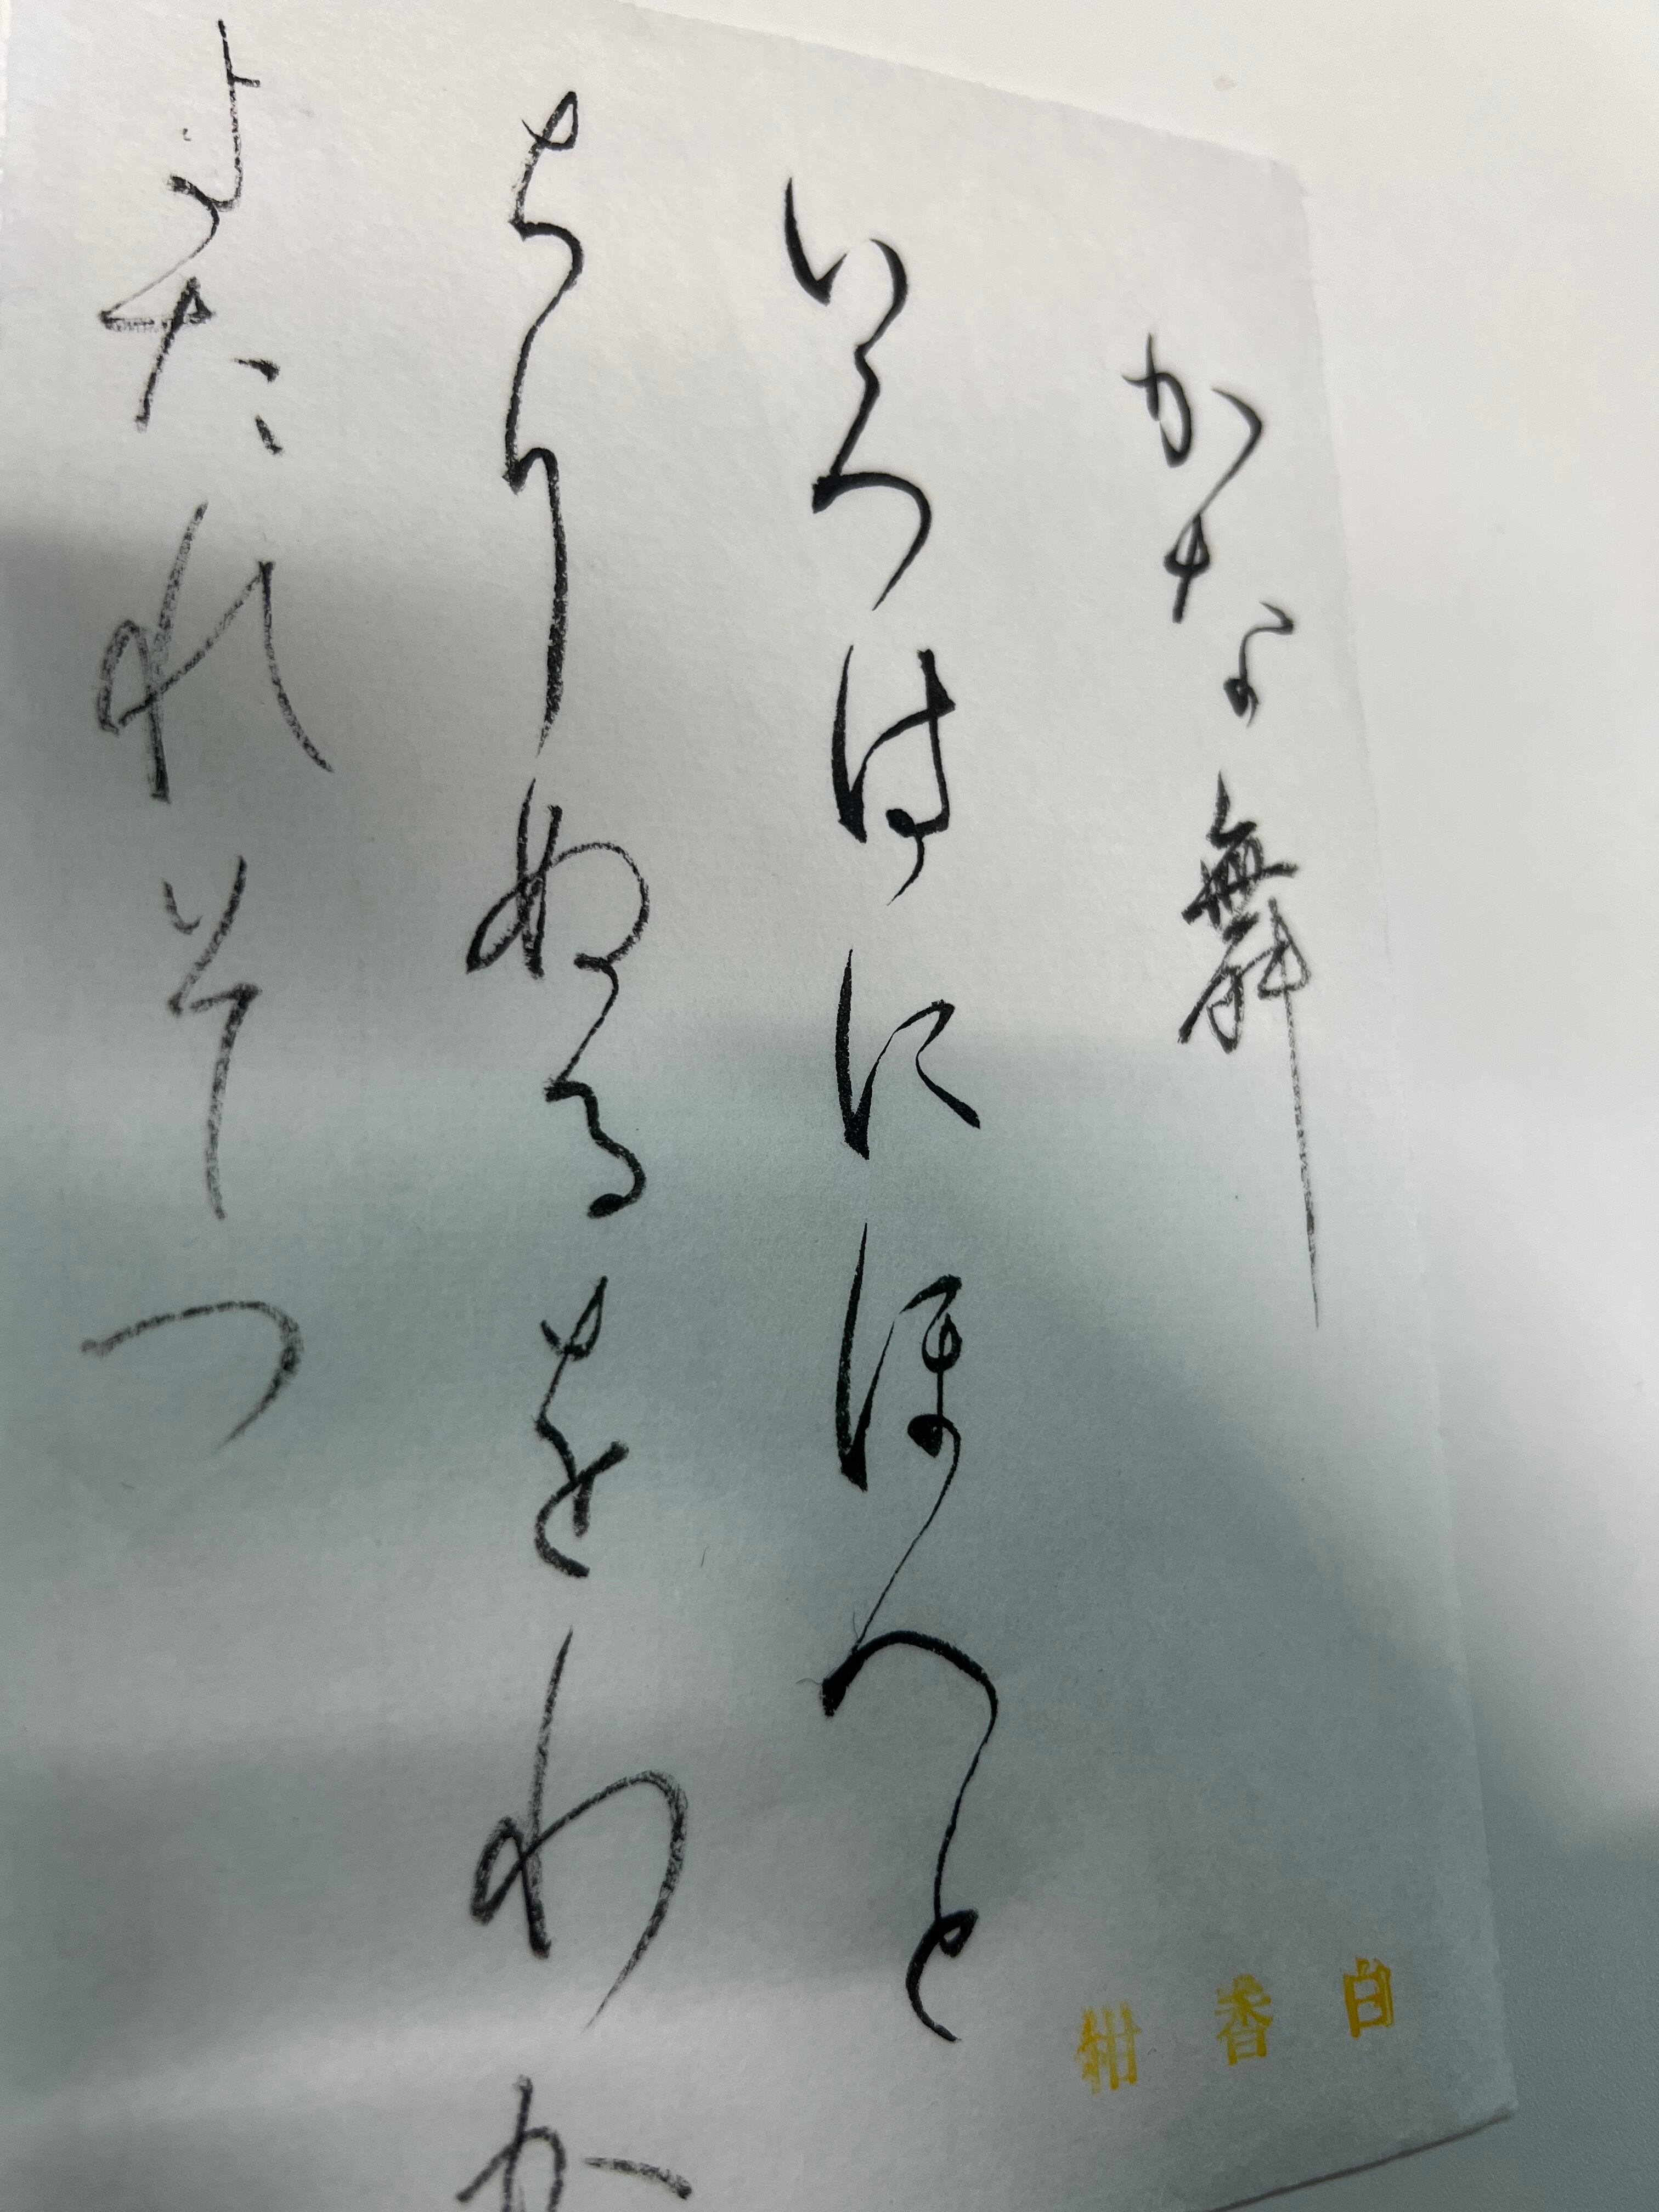 かな舞
いろはにほへと
ちりぬるをわか
よたれそつ
白香紺